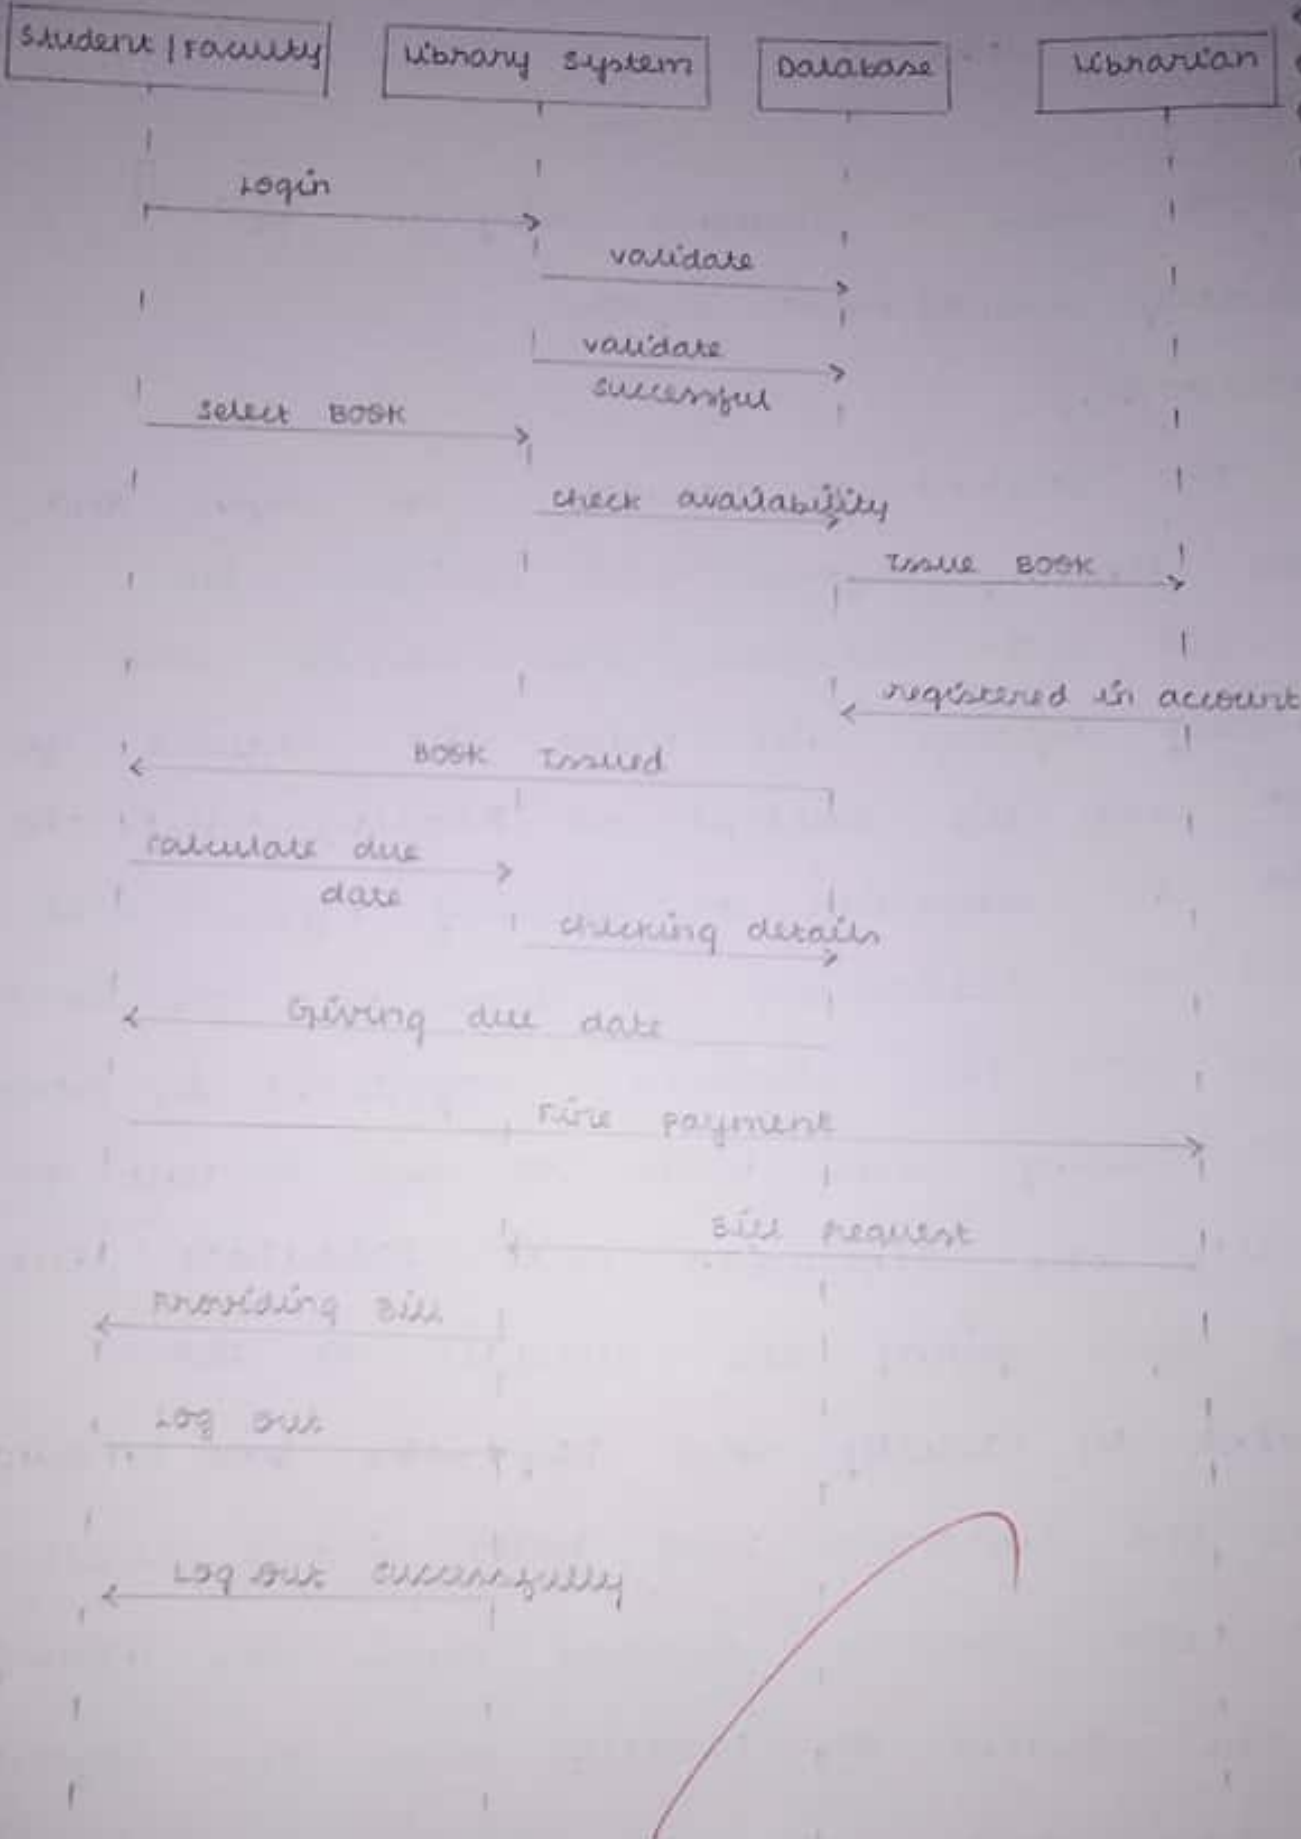 Student / Faculty
Library System
Database
Librarian
Login
validate
validate
successful
Select Book
check availability
Issue Book
registered in account
Book Issued
calculate due
date
checking details
Giving due date
Fine payment
Bill request
Providing Bill
Log out
Log out successfully